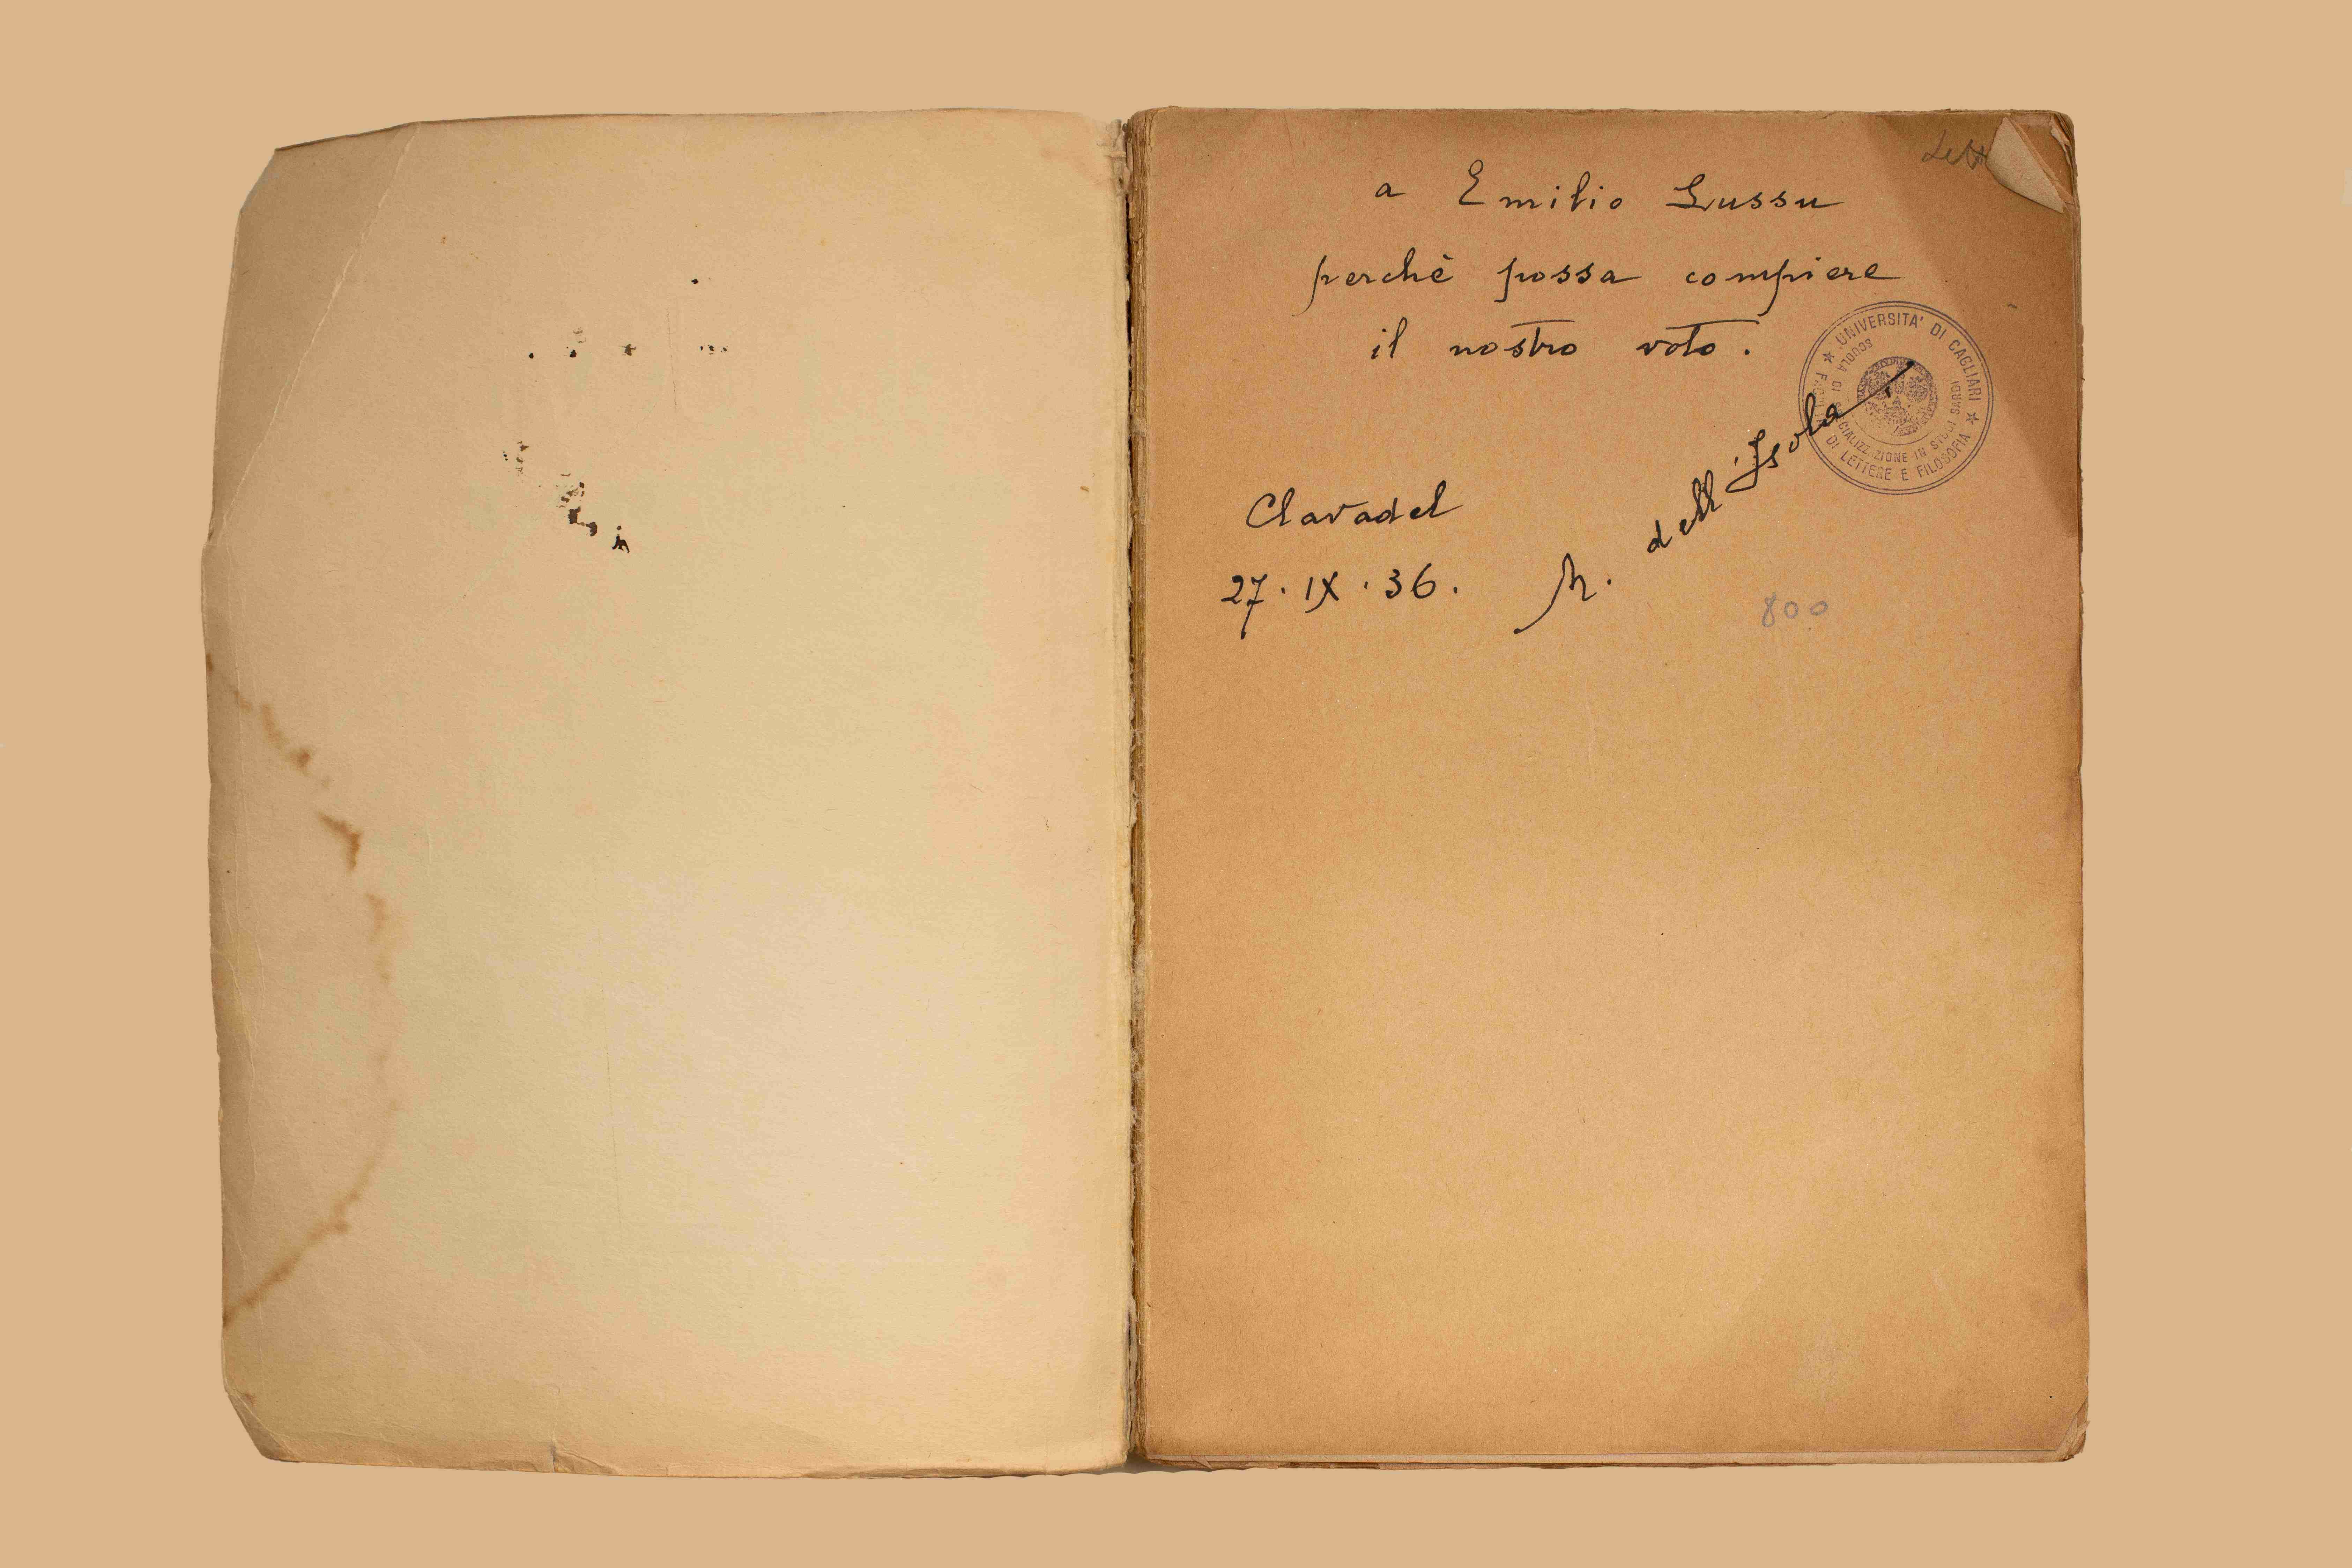 a Emilio Lussu
perchè possa compiere
il nostro voto.
Clavadel
27·IX·36.
M. dell'Isola
800
★ UNIVERSITA' DI CAGLIARI ★
DI LETTERE E FILOSOFIA
SCUOLA DI SPECIALIZZAZIONE IN STUDI SARDI